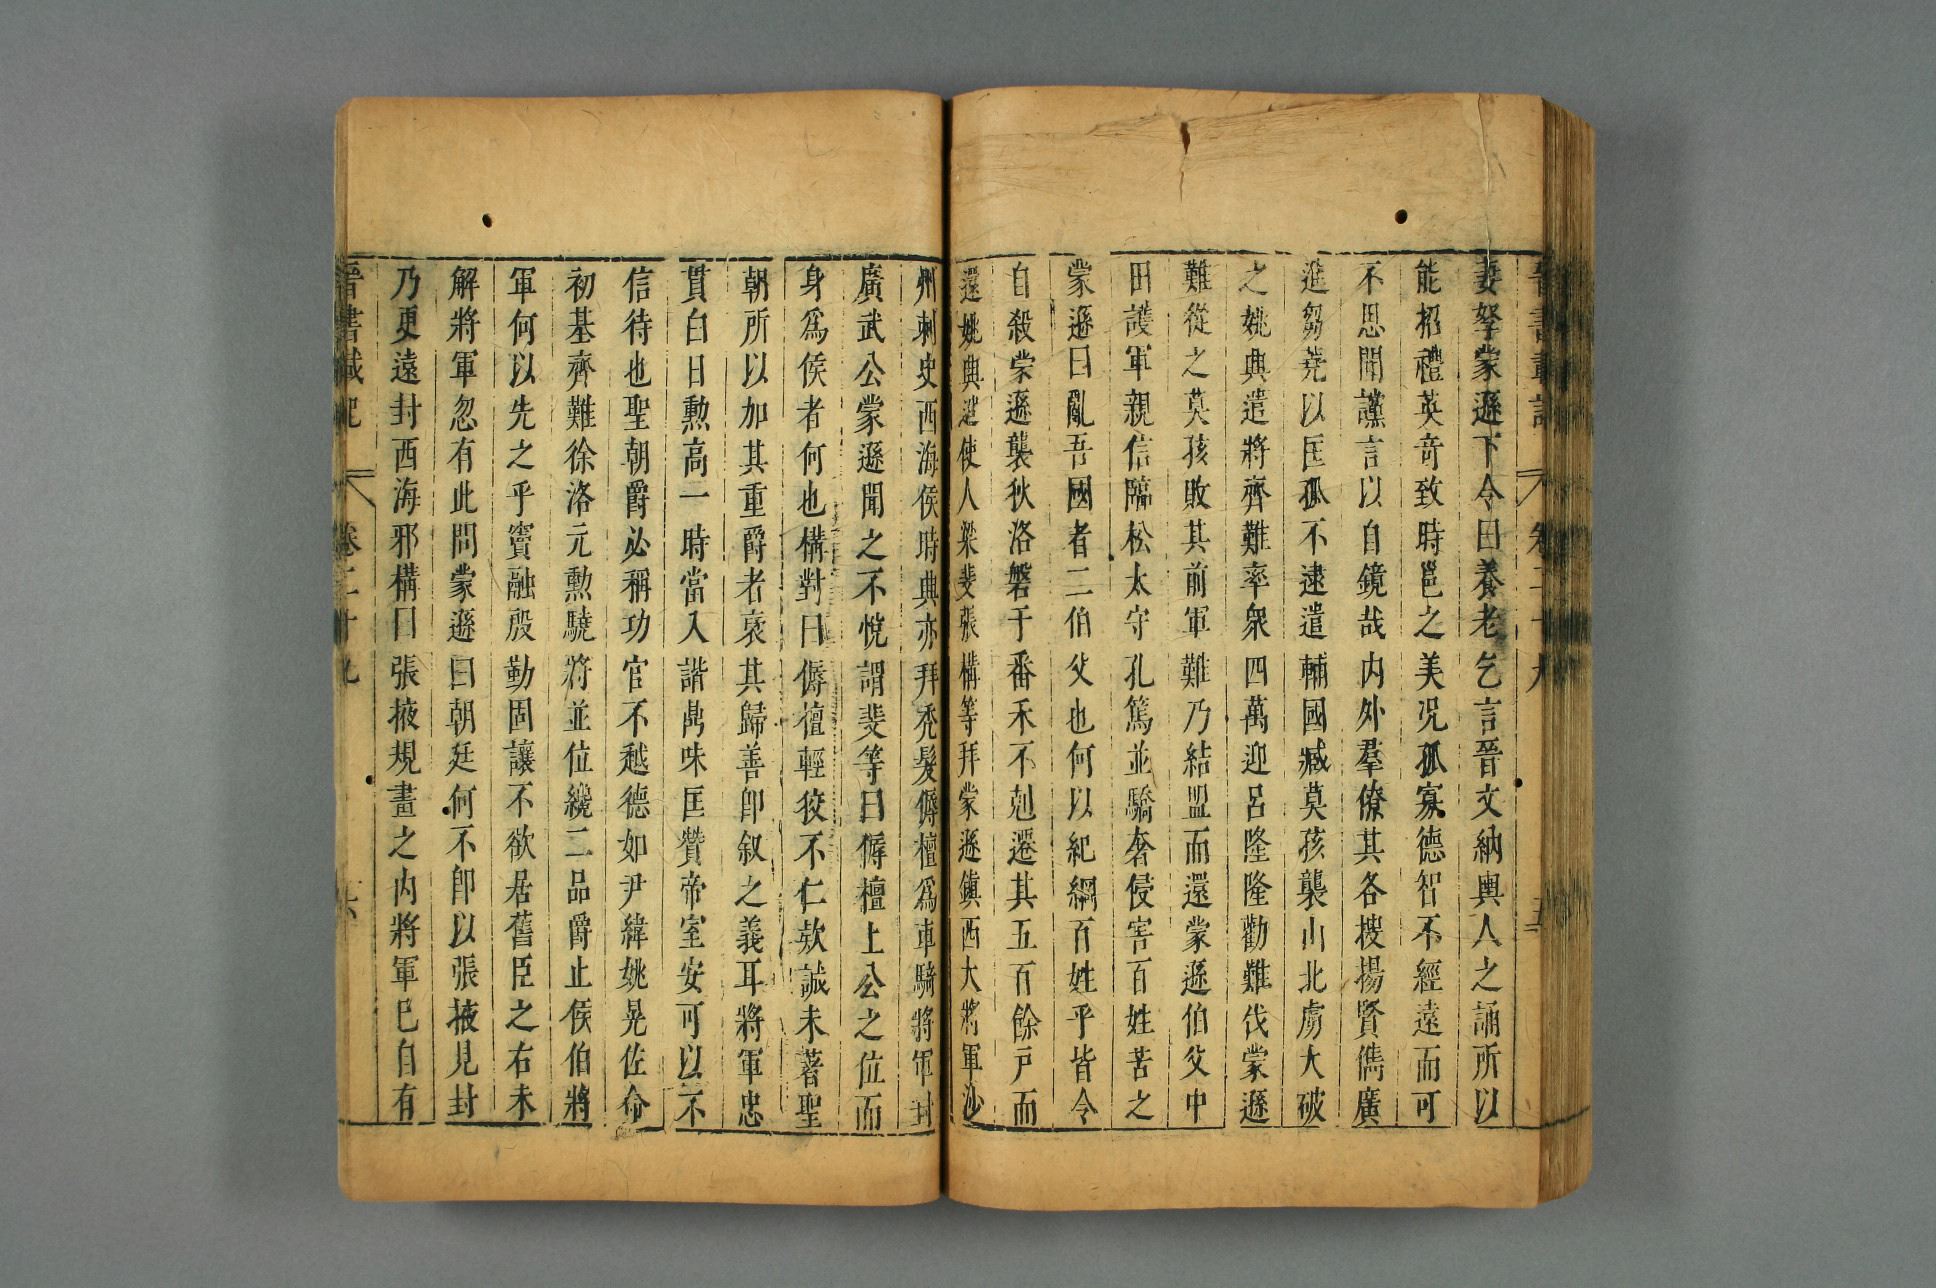 晉書載記 卷二十九 五
妻孥蒙遜下令曰養老乞言晉文納輿人之誦所以
能招禮英奇致時邕之美况孤寡德智不經遠而可
不思聞讜言以自鏡哉内外羣僚其各搜揚賢儁廣
進芻蕘以匡孤不逮遣輔國臧莫孩襲山北虜大破
之姚興遣將齊難率衆四萬迎呂隆隆勸難伐蒙遜
難從之莫孩敗其前軍難乃結盟而還蒙遜伯父中
田護軍親信臨松太守孔篤並驕奢侵害百姓苦之
蒙遜曰亂吾國者二伯父也何以紀綱百姓乎皆令
自殺蒙遜襲狄洛磐于番禾不剋遷其五百餘戸而
還姚興遣使人梁斐張構等拜蒙遜鎮西大將軍沙
州刺史西海侯時興亦拜禿髮傉檀爲車騎將軍封
廣武公蒙遜聞之不悅謂斐等曰傉檀上公之位而
身爲侯者何也構對曰傉檀輕狡不仁欵誠未著聖
朝所以加其重爵者褒其歸善卽叙之義耳將軍忠
貫白日勲高一時當入諧鼎味匡贊帝室安可以不
信待也聖朝爵必稱功官不越德如尹緯姚晃佐命
初基齊難徐洛元勲驍將並位纔二品爵止侯伯將
軍何以先之乎竇融殷勤固讓不欲居舊臣之右未
解將軍忽有此問蒙遜曰朝廷何不卽以張掖見封
乃更遠封西海邪構曰張掖規畫之内將軍巳自有
晉書載記 卷二十九 六